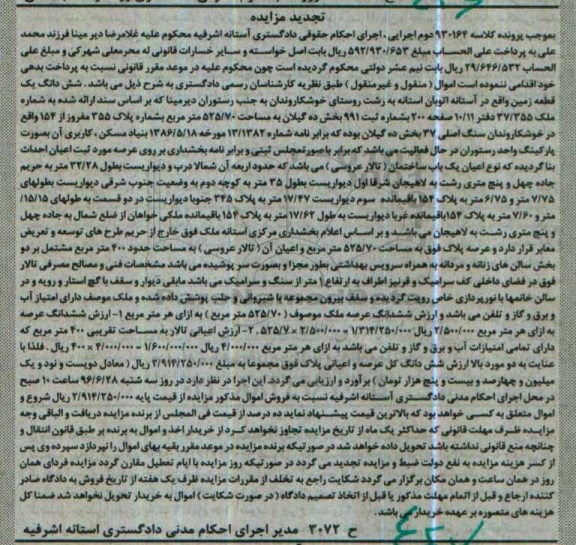 تجدید مزایده
بموجب پرونده کلاسه ۹۳۰۱۶۴ دوم اجرایی ، اجرای احکام حقوقی دادگستری آستانه اشرفیه محکوم علیه غلامرضا دیر مینا فرزند محمد
علی به پرداخت علی الحساب مبلغ ۵۹۲/۹۳۰/۶۵۳ ریال بابت اصل خواسته و سایر خسارات قانونی له محرمعلی شهرکی و مبلغ علی
الحساب ۲۹/۶۴۶/۵۳۲ ریال بابت نیم عشر دولتی محکوم گردیده است چون محکوم علیه در موعد مقرر قانونی نسبت به پرداخت بدهی
خود اقدامی ننموده است اموال ( منقول و غیرمنقول ) طبق نظریه کارشناسان رسمی دادگستری به شرح ذیل می باشد . شش دانگ یک
قطعه زمین واقع در آستانه اتوبان آستانه به رشت روستای خوشکاروندان به جنب رستوران دیرمینا که بر اساس سند ارائه شده به شماره
ملک ۳۷/۳۵۵ دفتر ۱۰/۱۱ صفحه ۲۰۰ بشماره ثبت ۹۹۱ بخش ده گیلان به مساحت ۵۲۵/۷۰ متر مربع بشماره پلاک ۳۵۵ مفروز از ۱۵۴ واقع
در خوشکاروندان سنگ اصلی ۳۷ بخش ده گیلان بوده که برابر نامه شماره ۱۳/۱۳۸۲ مورخه ۱۳۸۶/۵/۱۸ بنیاد مسکن ، کاربری آن بصورت
پارکینگ واحد رستوران در حال فعالیت می باشد که برابر با صورتمجلس ثبتی و برابر نامه بخشداری بر روی عرصه مورد ثبت اعیان احداث
بنا گردیده که نوع اعیان یک باب ساختمان ( تالار عروسی ) می باشد که حدود اربعه آن شمالا درب و دیواریست بطول ۳۲/۲۸ متر به حریم
جاده چهل و پنج متری رشت به لاهیجان شرقا اول دیواریست بطول ۳۵ متر به کوچه دوم به وضعیت جنوب شرقی دیواریست بطولهای
۷/۷۵ متر و ۶/۷۵ متر به پلاک ۱۵۴ باقیمانده سوم دیواریست ۱۷/۴۷ متر به پلاک ۳۴۵ جنوبا دیواریست در دو قسمت به طولهای ۱۵/۱۵
متر و ۷/۶۰ متر به پلاک ۱۵۴ باقیمانده غربا دیواریست به طول ۱۷/۶۲ متر به پلاک ۱۵۴ باقیمانده ملکی خواهان از ضلع شمال به جاده چهل
و پنج متری رشت به لاهیجان می باشد و بر اساس اعلام بخشداری مرکزی آستانه ملک فوق خارج از حریم طرح های توسعه و تعریض
معابر قرار دارد و عرصه پلاک فوق به مساحت ۵۲۵/۷۰ متر مربع و اعیان آن ( تالار عروسی ) به مساحت حدود ۴۰۰ متر مربع مشتمل بر دو
بخش سالن های زنانه و مردانه به همراه سرویس بهداشتی بطور مجزا و بصورت سر پوشیده می باشد مشخصات فنی و مصالح مصرفی تالار
فوق در فضای داخلی کف سرامیک و قرنیز اطراف به ارتفاع ۱ متر از سنگ و سرامیک می باشد مابقی دیوار و سقف با گچ استار و رویه و در
سالن خانمها با نورپردازی خاص رویت گردیده و سقف بیرون مجموعه با شیروانی و حلب پوشش داده شده و ملک موصوف دارای امتیاز آب
و برق و گاز و تلفن می باشد و ارزش ششدانگ عرصه ملک موصوف ( ۵۲۵/۷۰ متر ) به ازای هر متر مربع ۱- ارزش ششدانگ عرصه
به ازای هر متر مربع ۲/۵۰۰/۰۰۰ ریال ۱/۳۱۴/۲۵۰/۰۰۰ = ۲/۵۰۰/۰۰۰ × ۵۲۵/۷ ۲- ارزش اعیانی تالار به مساحت تقریبی ۴۰۰ متر مربع که
دارای تمامی امتیازات آب و برق و گاز و تلفن می باشد به ازای هر متر مربع ۴/۰۰۰/۰۰۰ ریال ۱/۶۰۰/۰۰۰/۰۰۰ = ۴/۰۰۰/۰۰۰ × ۴۰۰ ریال . فلذا با
عنایت به دو مورد بالا ارزش شش دانگ کل عرصه و اعیانی پلاک فوق مجموعا به مبلغ ۲/۹۱۴/۲۵۰/۰۰۰ ریال ( معادل دویست و نود و یک
میلیون و چهارصد و بیست و پنج هزار تومان ) برآورد و ارزیابی می گردد. این اجرا در نظر دارد در روز سه شنبه ۹۶/۶/۲۸ ساعت ۱۰ صبح
در محل اجرای احکام مدنی دادگستری آستانه اشرفیه نسبت به فروش اموال مذکور مزایده از قیمت پایه ۲/۹۱۴/۲۵۰/۰۰۰ ریال شروع و
اموال متعلق به کسی خواهد بود که بالاترین قیمت پیشنهاد نماید ده درصد از قیمت فی المجلس از برنده مزایده دریافت و الباقی وجه
مزایده ظرف مهلت قانونی که حداکثر یک ماه از تاریخ مزایده تجاوز نخواهد کرد از خریدار اخذ و اموال به برنده بر طبق قانون انتقال و
چنانچه منع قانونی نداشته باشد تحویل داده خواهد شد در صورتیکه برنده مزایده در موعد مقرر بقیه بهای اموال را نپردازد سپرده وی پس
از کسر هزینه مزایده به نفع دولت ضبط و مزایده تجدید می گردد در صورتیکه روز مزایده با ایام تعطیل مقارن گردد مزایده فردای همان
روز در همان ساعت و همان مکان برگزار می گردد شکایت راجع به تخلف از مقررات مزایده ظرف یک هفته از تاریخ فروش به دادگاه صادر
کننده ارجاع و قبل از اتمام مهلت مذکور یا قبل از اتخاذ تصمیم دادگاه ( در صورت شکایت ) اموال به خریدار تحویل نخواهد شد ضمنا کل
هزینه های متصوره بر عهده خریدار می باشد .
ح ۳۰۷۲ مدیر اجرای احکام مدنی دادگستری استانه اشرفیه